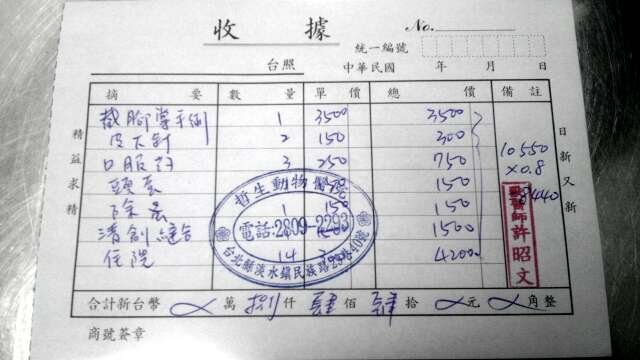 收據
No.
統一編號
台照 中華民國 年 月 日
摘要 數量 單價 總價 備註
截腳掌手術 1 3500 3500
皮下針 2 150 300
口服藥 3 250 750
頭套 150
除蚤 1 150 150
清創縫合 1500
住院 14 4200
10550
×0.8
8440
精益求精
日新又新
哲生動物醫院
電話:2809-2293
台北縣淡水鎮民族路29巷40號
獸醫師許昭文
合計新台幣 萬 捌仟 肆佰 肆拾 元 角整
商號簽章